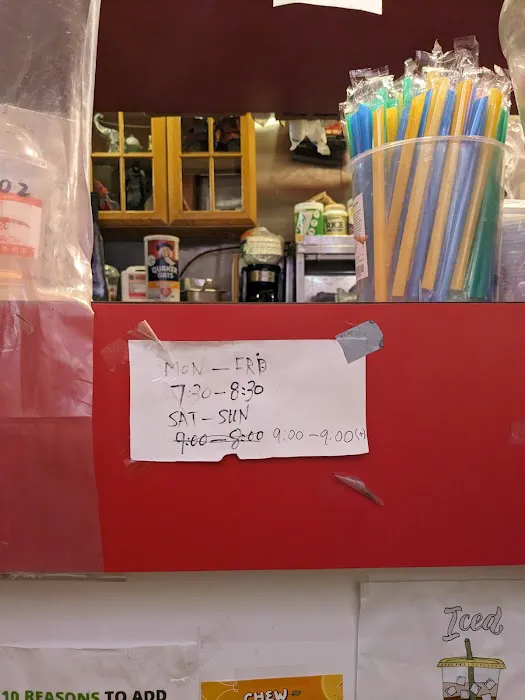 02
QUAKER
OATS
RICE
MON - FRI
7:30 - 8:30
SAT - SUN
9:00 - 8:00 9:00 - 9:00(+)
Iced
10 REASONS TO ADD
CHEW